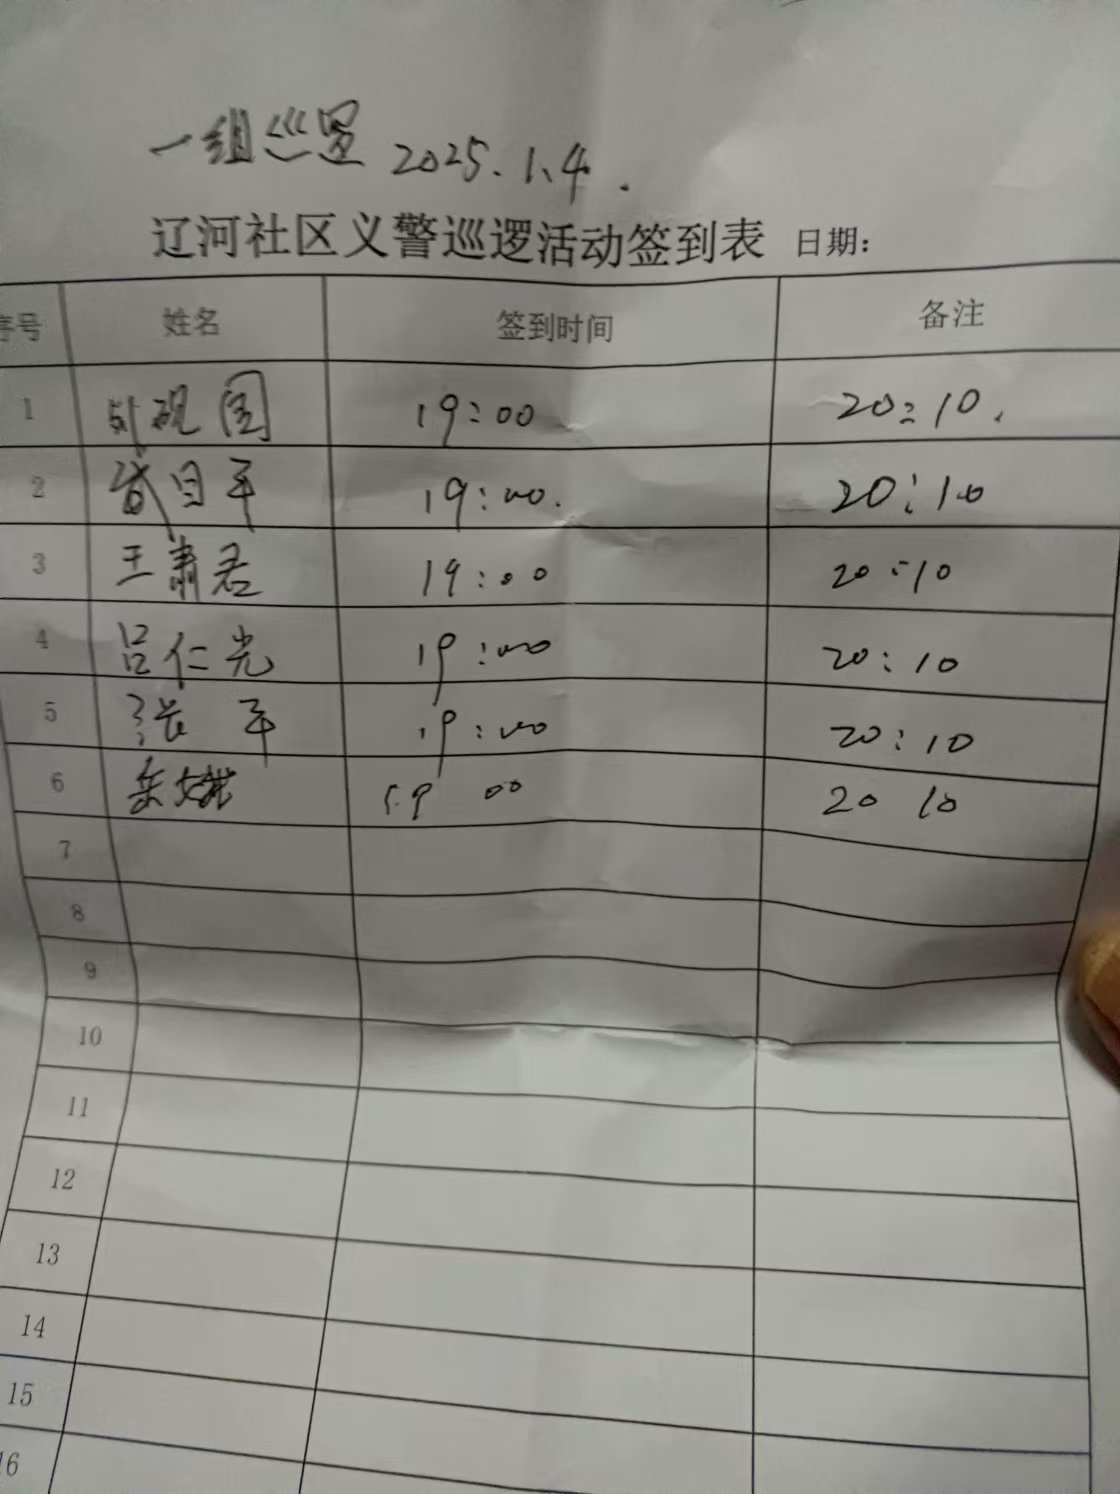 一组巡罗 2025.1.4.
辽河社区义警巡逻活动签到表 日期:
序号 姓名 签到时间 备注
1 国 19:00 20:10.
2 平 19:00. 20:10
3 王肃君 19:00 20:10
4 吕仁光 19:00 20:10
5 张平 19:00 20:10
6 19 00 20 10
7
8
9
10
11
12
13
14
15
16